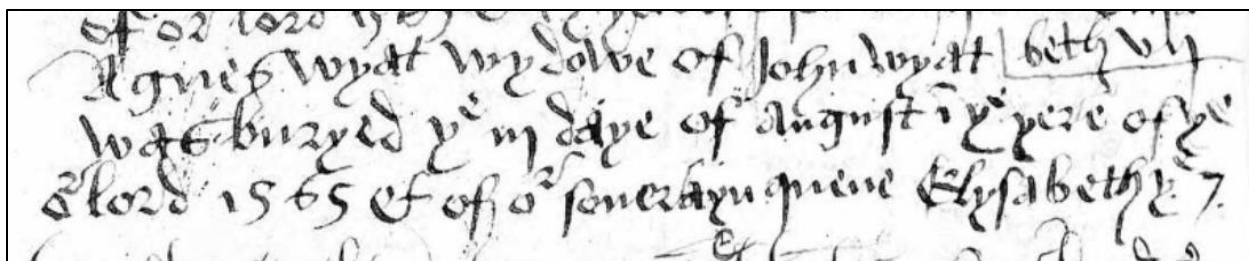 of or lord 1565 &
Agnes wyat wydowe of John wyat beth vij
was buryed ye iij daye of August ī ye yere of ye
or lord 1565 & of or souerayn quene Elysabeth ye 7.